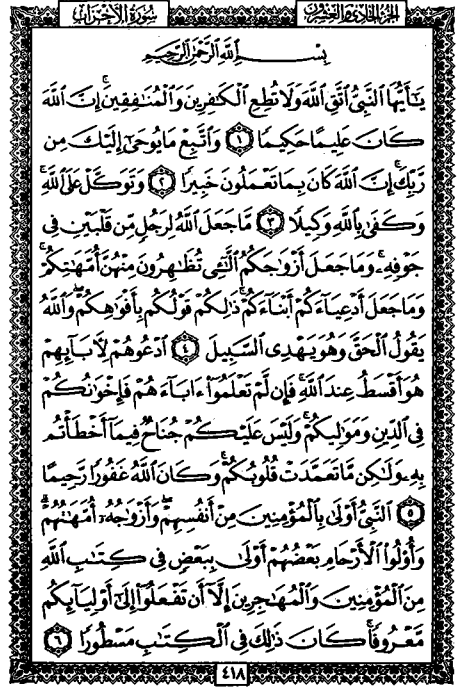 سُورَةُ الأَحْزَابِ
الجُزْءُ الحَادِي وَالعِشْرُونَ
بِسْمِ ٱللَّهِ ٱلرَّحْمَٰنِ ٱلرَّحِيمِ
يَٰٓأَيُّهَا ٱلنَّبِىُّ ٱتَّقِ ٱللَّهَ وَلَا تُطِعِ ٱلْكَٰفِرِينَ وَٱلْمُنَٰفِقِينَ ۗ إِنَّ ٱللَّهَ
كَانَ عَلِيمًا حَكِيمًا ١ وَٱتَّبِعْ مَا يُوحَىٰٓ إِلَيْكَ مِن
رَّبِّكَ ۚ إِنَّ ٱللَّهَ كَانَ بِمَا تَعْمَلُونَ خَبِيرًا ٢ وَتَوَكَّلْ عَلَى ٱللَّهِ ۚ
وَكَفَىٰ بِٱللَّهِ وَكِيلًا ٣ مَّا جَعَلَ ٱللَّهُ لِرَجُلٍ مِّن قَلْبَيْنِ فِى
جَوْفِهِۦ ۚ وَمَا جَعَلَ أَزْوَٰجَكُمُ ٱلَّٰٓـِٔى تُظَٰهِرُونَ مِنْهُنَّ أُمَّهَٰتِكُمْ ۚ
وَمَا جَعَلَ أَدْعِيَآءَكُمْ أَبْنَآءَكُمْ ۚ ذَٰلِكُمْ قَوْلُكُم بِأَفْوَٰهِكُمْ ۖ وَٱللَّهُ
يَقُولُ ٱلْحَقَّ وَهُوَ يَهْدِى ٱلسَّبِيلَ ٤ ٱدْعُوهُمْ لِأَبَآئِهِمْ
هُوَ أَقْسَطُ عِندَ ٱللَّهِ ۚ فَإِن لَّمْ تَعْلَمُوٓا۟ ءَابَآءَهُمْ فَإِخْوَٰنُكُمْ
فِى ٱلدِّينِ وَمَوَٰلِيكُمْ ۚ وَلَيْسَ عَلَيْكُمْ جُنَاحٌ فِيمَآ أَخْطَأْتُم
بِهِۦ وَلَٰكِن مَّا تَعَمَّدَتْ قُلُوبُكُمْ ۚ وَكَانَ ٱللَّهُ غَفُورًا رَّحِيمًا
٥ ٱلنَّبِىُّ أَوْلَىٰ بِٱلْمُؤْمِنِينَ مِنْ أَنفُسِهِمْ ۖ وَأَزْوَٰجُهُۥٓ أُمَّهَٰتُهُمْ ۗ
وَأُو۟لُوا۟ ٱلْأَرْحَامِ بَعْضُهُمْ أَوْلَىٰ بِبَعْضٍ فِى كِتَٰبِ ٱللَّهِ
مِنَ ٱلْمُؤْمِنِينَ وَٱلْمُهَٰجِرِينَ إِلَّآ أَن تَفْعَلُوٓا۟ إِلَىٰٓ أَوْلِيَآئِكُم
مَّعْرُوفًا ۚ كَانَ ذَٰلِكَ فِى ٱلْكِتَٰبِ مَسْطُورًا ٦
٤١٨